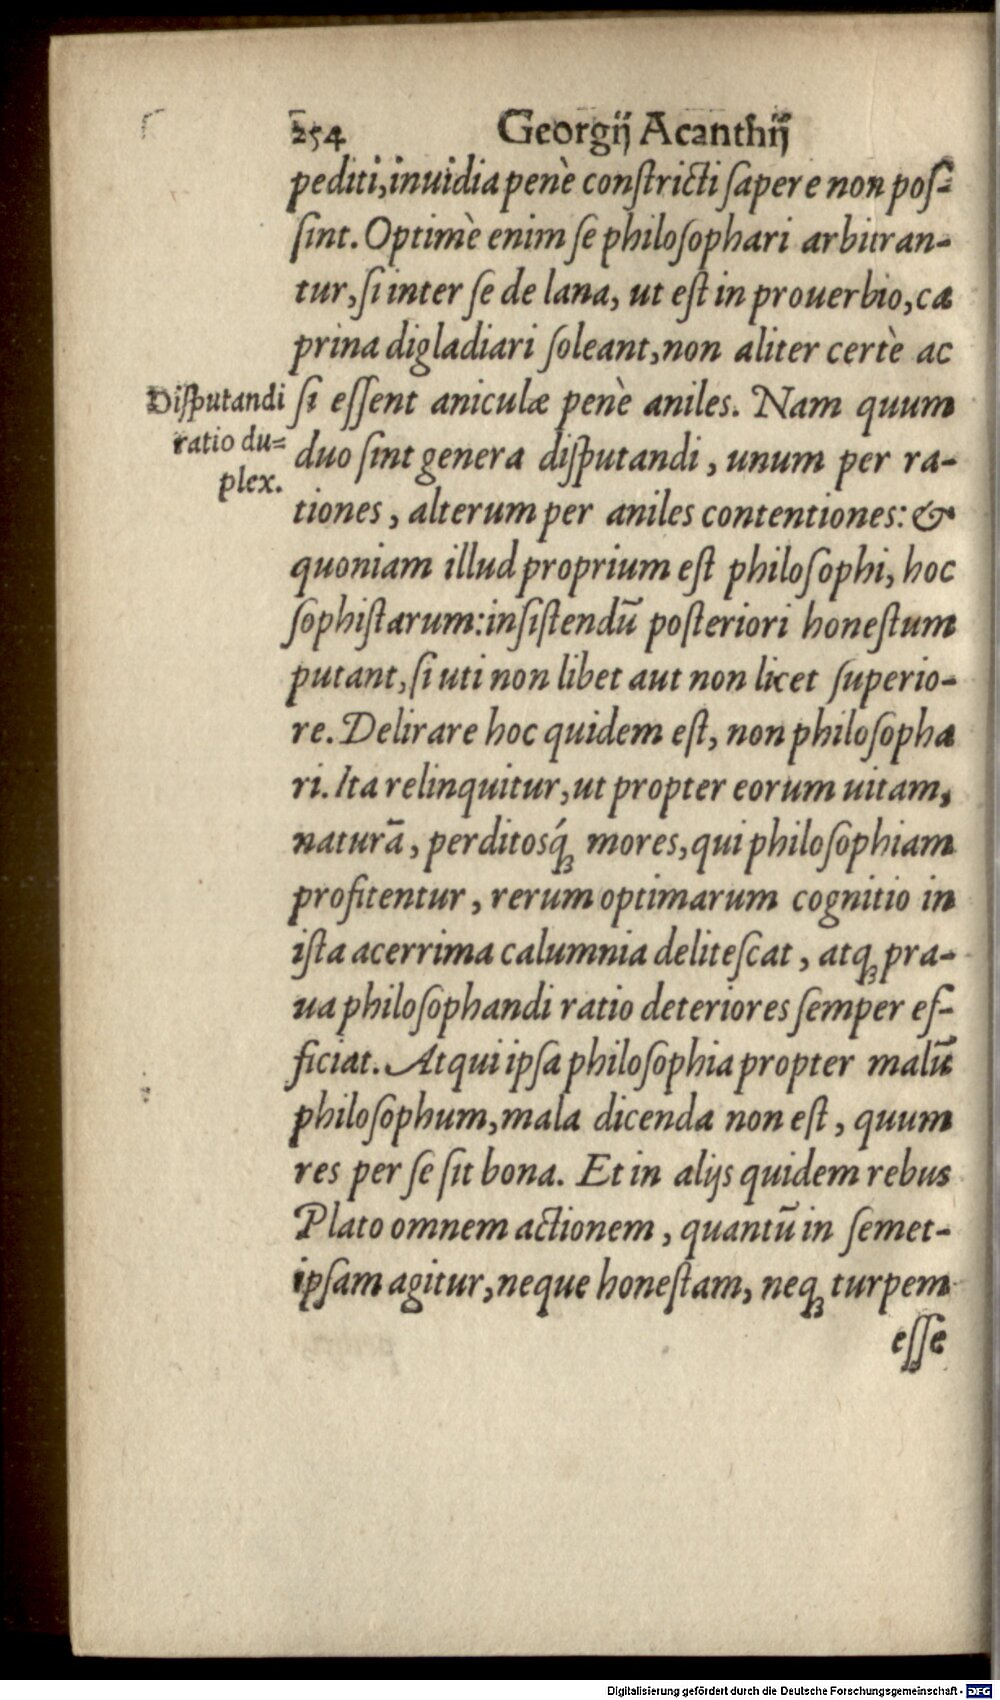 254 Georgij Acanthij
pediti, inuidia penè constricti sapere non pos-
sint. Optimè enim se philosophari arbitran-
tur, si inter se de lana, ut est in prouerbio, ca
prina digladiari soleant, non aliter certè ac
Disputandi
ratio du-
plex.
si essent aniculæ penè aniles. Nam quum
duo sint genera disputandi, unum per ra-
tiones, alterum per aniles contentiones: &
quoniam illud proprium est philosophi, hoc
sophistarum: insistendū posteriori honestum
putant, si uti non libet aut non licet superio-
re. Delirare hoc quidem est, non philosopha
ri. Ita relinquitur, ut propter eorum uitam,
naturā, perditosq́; mores, qui philosophiam
profitentur, rerum optimarum cognitio in
ista acerrima calumnia delitescat, atq; pra-
ua philosophandi ratio deteriores semper ef-
ficiat. Atqui ipsa philosophia propter malū
philosophum, mala dicenda non est, quum
res per se sit bona. Et in alijs quidem rebus
Plato omnem actionem, quantū in semet-
ipsam agitur, neque honestam, neq; turpem
esse
Digitalisierung gefördert durch die Deutsche Forschungsgemeinschaft - DFG